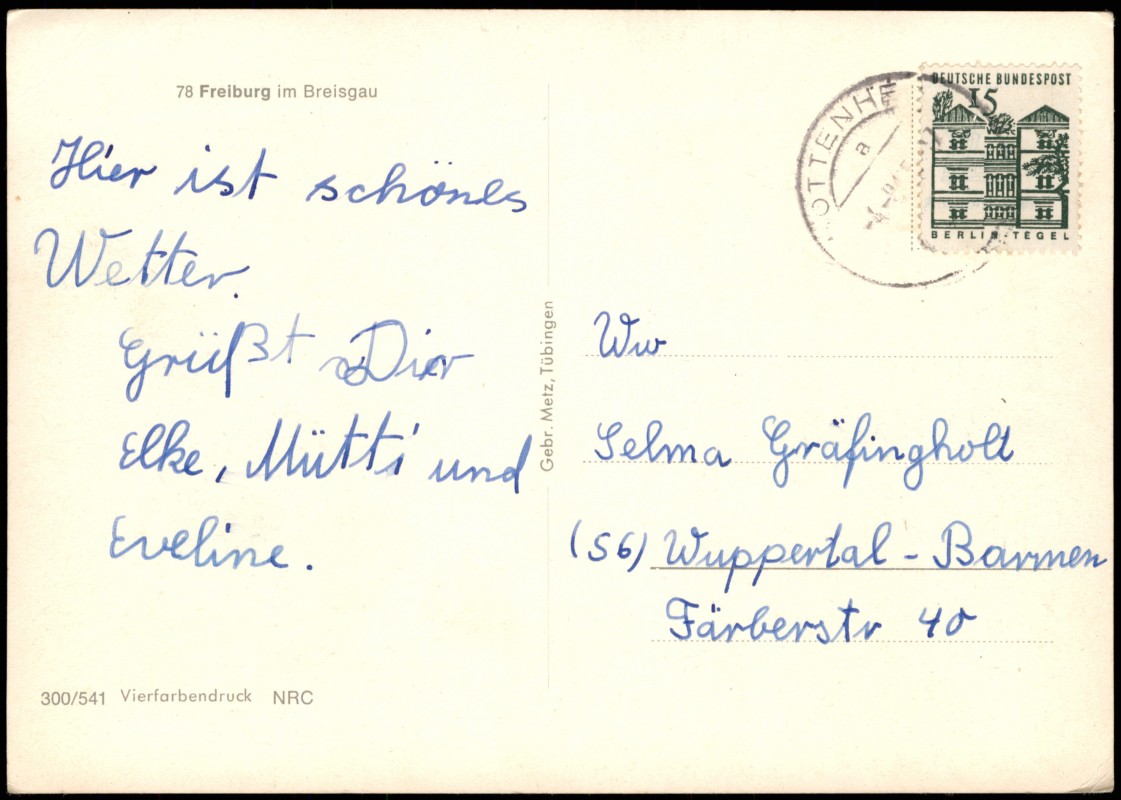 78 Freiburg im Breisgau
Hier ist schönes
Wetter.
Grüßt Dir
Elke, Mutti und
Eveline.
300/541 Vierfarbendruck NRC
Gebr. Metz, Tübingen
DEUTSCHE BUNDESPOST
15
BERLIN-TEGEL
a
Ww
Selma Gräfingholt
(56) Wuppertal - Barmen
Färberstr 40